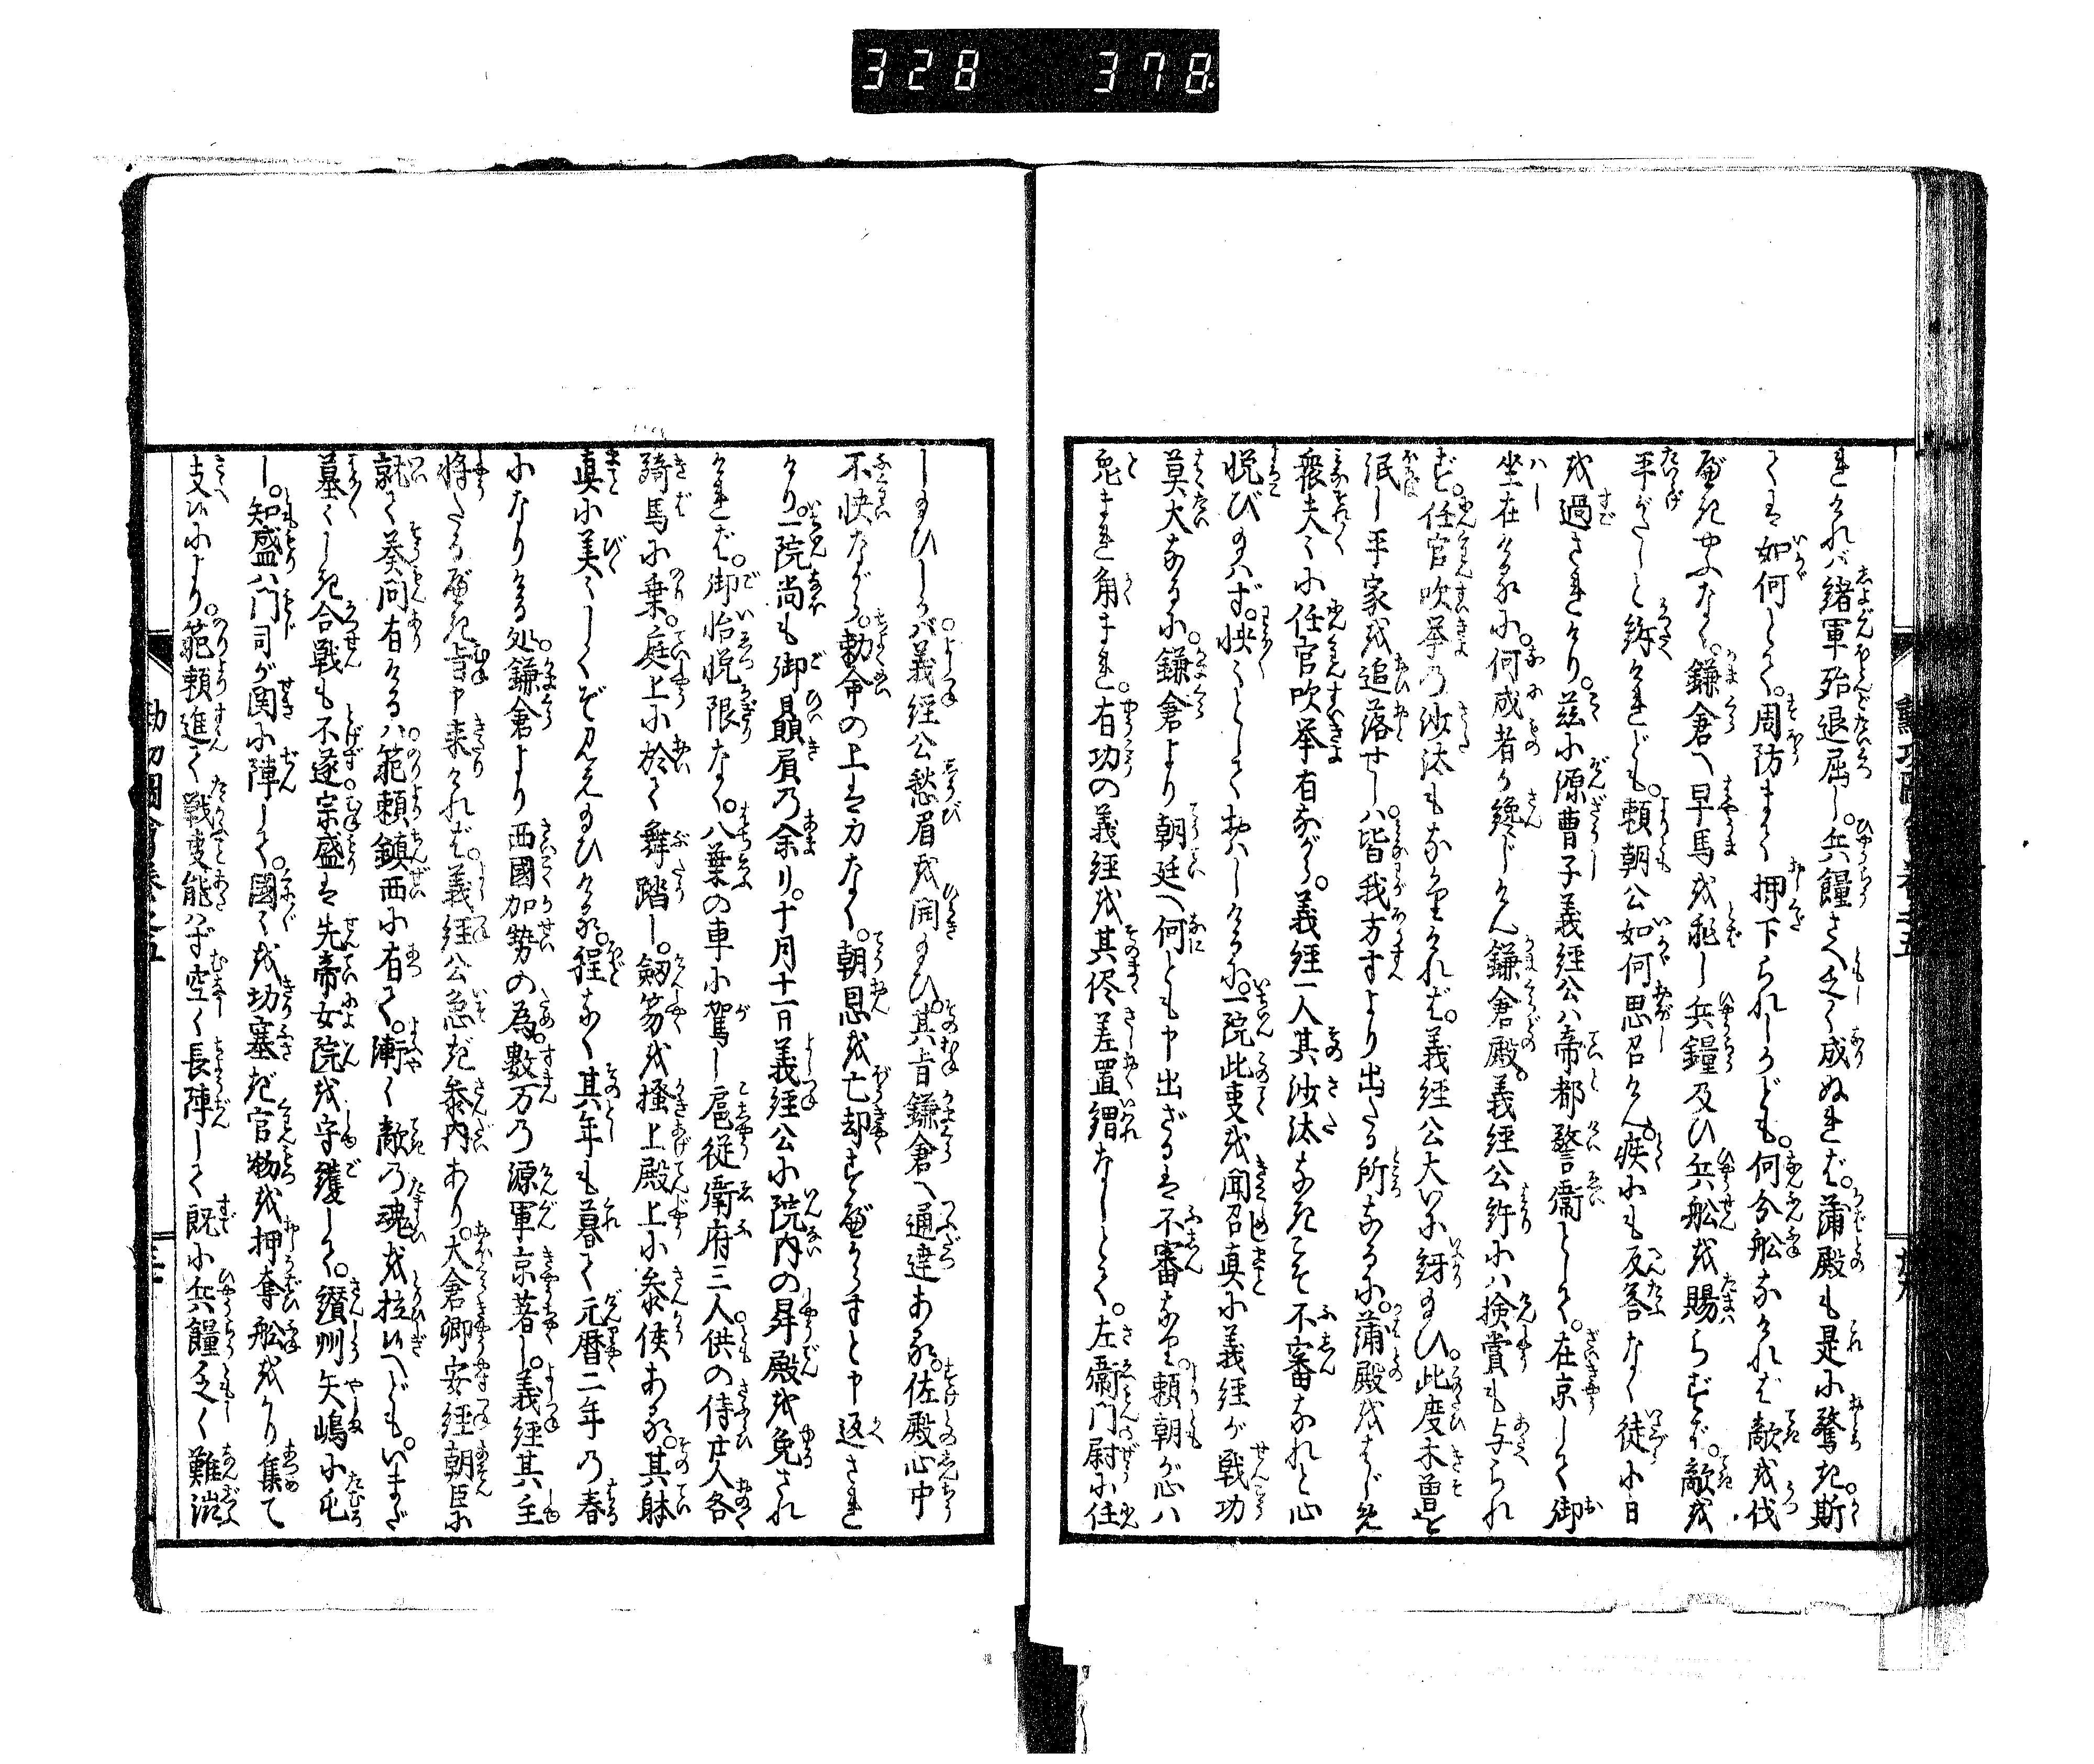 328 378
れければ緒軍殆退屈し。兵糧さへ乏く成ぬれば。蒲殿も是に驚き。斯
ては如何とて。周防まで押下られしかども。何分舩なければ敵を伐
べきやふなく。鎌倉へ早馬を飛し兵糧及ひ兵舩を賜らずば。敵を
平がたしと訴けれども。頼朝公如何思召けん。疾にも反答なく徒に日
を過されけり。茲に源曹子義経公ハ帝都警衞として。在京しく御
坐在けるに。何成者か纔じけん鎌倉殿。義経公許にハ掟賞も与られ
ず。任官吹挙の沙汰もなかりければ。義経公大いに訝給ひ。此度木曽を
泯し平家を追落せしハ。皆我方寸より出たる所なるに。蒲殿をはじめ
衆夫々に任官吹挙有ながら。義経一人其沙汰なきこそ不審なれと心
悦び給ハず。怏々として坐しけるに。一院此叓を聞召真に義経が戦功
莫大なるに。鎌倉より朝廷へ何とも申出ざるは不審なり。頼朝が心ハ
兎まれ角まれ。有功の義経を其侭差置謂なしとて。左衞門尉に任
し給ひしかバ義経公愁眉を開給ひ。其旨鎌倉へ通達ある。佐殿心中
不快ながら。勅命の上は力なく。朝恩を亡却すべからずと申返され
けり。一院尚も御贔屓の余り。十月十一日義経公に院内の昇殿を免され
ければ。御怡悦限なく。八葉の車に駕し扈従衞府三人。供の侍廿人各
騎馬に乗。庭上に於て舞踏し。劔笏を搔上殿上に参候ある。其躰
真に美々しくぞ見え給ひける。程なく其年も暮て元暦二年の春
になりける処。鎌倉より西國加勢の為。數万の源軍京着し。義経其主
将たるべき旨申来りければ。義経公急ぎ参内あり。大倉卿安経朝臣に
就て奏問有けるハ。範頼鎮西に有て。漸く敵の魂を拉ぐといへども。いまだ
墓々しき合戦も不遂。宗盛は先帝女院を守護して。讃州矢嶋に屯
し。知盛ハ門司が関に陣して。國々を切塞ぎ官物を押奪舩をかり集て
支ひにより。範頼進て戰叓能ハず空く長陣して既に兵糧乏く難澁